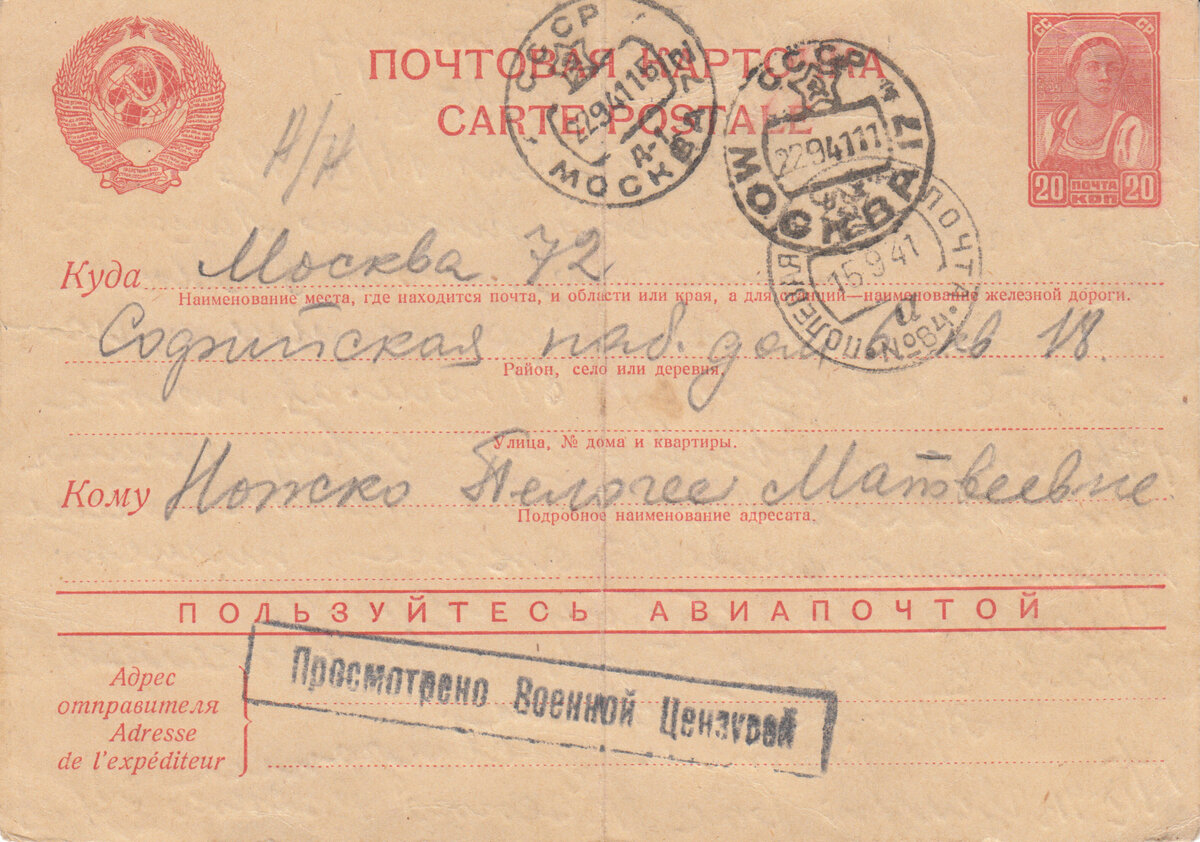 ПОЧТОВАЯ КАРТОЧКА
CARTE POSTALE
СССР МОСКВА
2294115
СССР МОСКВА 17
22941 11
ПОЛЕВАЯ ПОЧТА №684
15 9 41
а
СС СР
20 ПОЧТА КОП 20
Куда Москва 72
Наименование места, где находится почта, и области или края, а для станций—наименование железной дороги.
Софийская наб. дом 6 кв 18.
Район, село или деревня.
Улица, № дома и квартиры.
Кому Ножко Пелагее Матвеевне
Подробное наименование адресата.
ПОЛЬЗУЙТЕСЬ АВИАПОЧТОЙ
Просмотрено Военной Цензурой
Адрес
отправителя
Adresse
de l'expéditeur